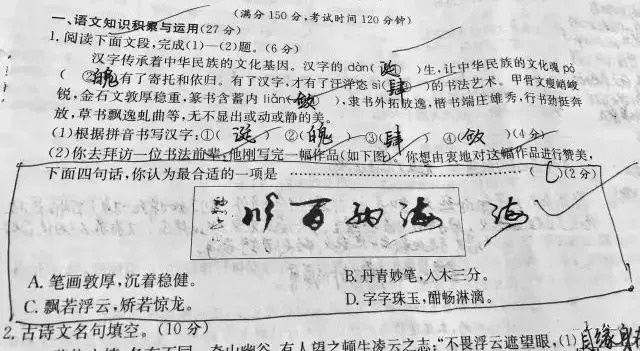 (满分150分,考试时间120分钟)
一、语文知识积累与运用(27分)
1. 阅读下面文段,完成(1)—(2)题。(6分)
汉字传承着中华民族的文化基因。汉字的dàn( 诞 )生,让中华民族的文化魂pò
( ②魄 )有了寄托和依归。有了汉字,才有了汪洋恣sì( 肆 )的书法艺术。甲骨文瘦峭峻
锐,金石文敦厚稳重,篆书含蓄内liǎn( 敛 ),隶书外拓放逸,楷书端庄雄秀,行书劲挺奔
放,草书飘逸虬曲等,无不显出或动或静的美。
(1)根据拼音书写汉字:①( 诞 ) ②( 魄 ) ③( 肆 ) ④( 敛 )(4分)
(2)你去拜访一位书法前辈,他刚写完一幅作品(如下图),你想由衷地对这幅作品进行赞美,
下面四句话,你认为最合适的一项是 ………………………… ( C )(2分)
川 百 纳 海
海
A. 笔画敦厚,沉着稳健。 B. 丹青妙笔,入木三分。
C. 飘若浮云,矫若惊龙。 D. 字字珠玉,酣畅淋漓。
2. 古诗文名句填空。(10分)
有人望之顿生凌云之志:“不畏浮云遮望眼,(1)自缘身